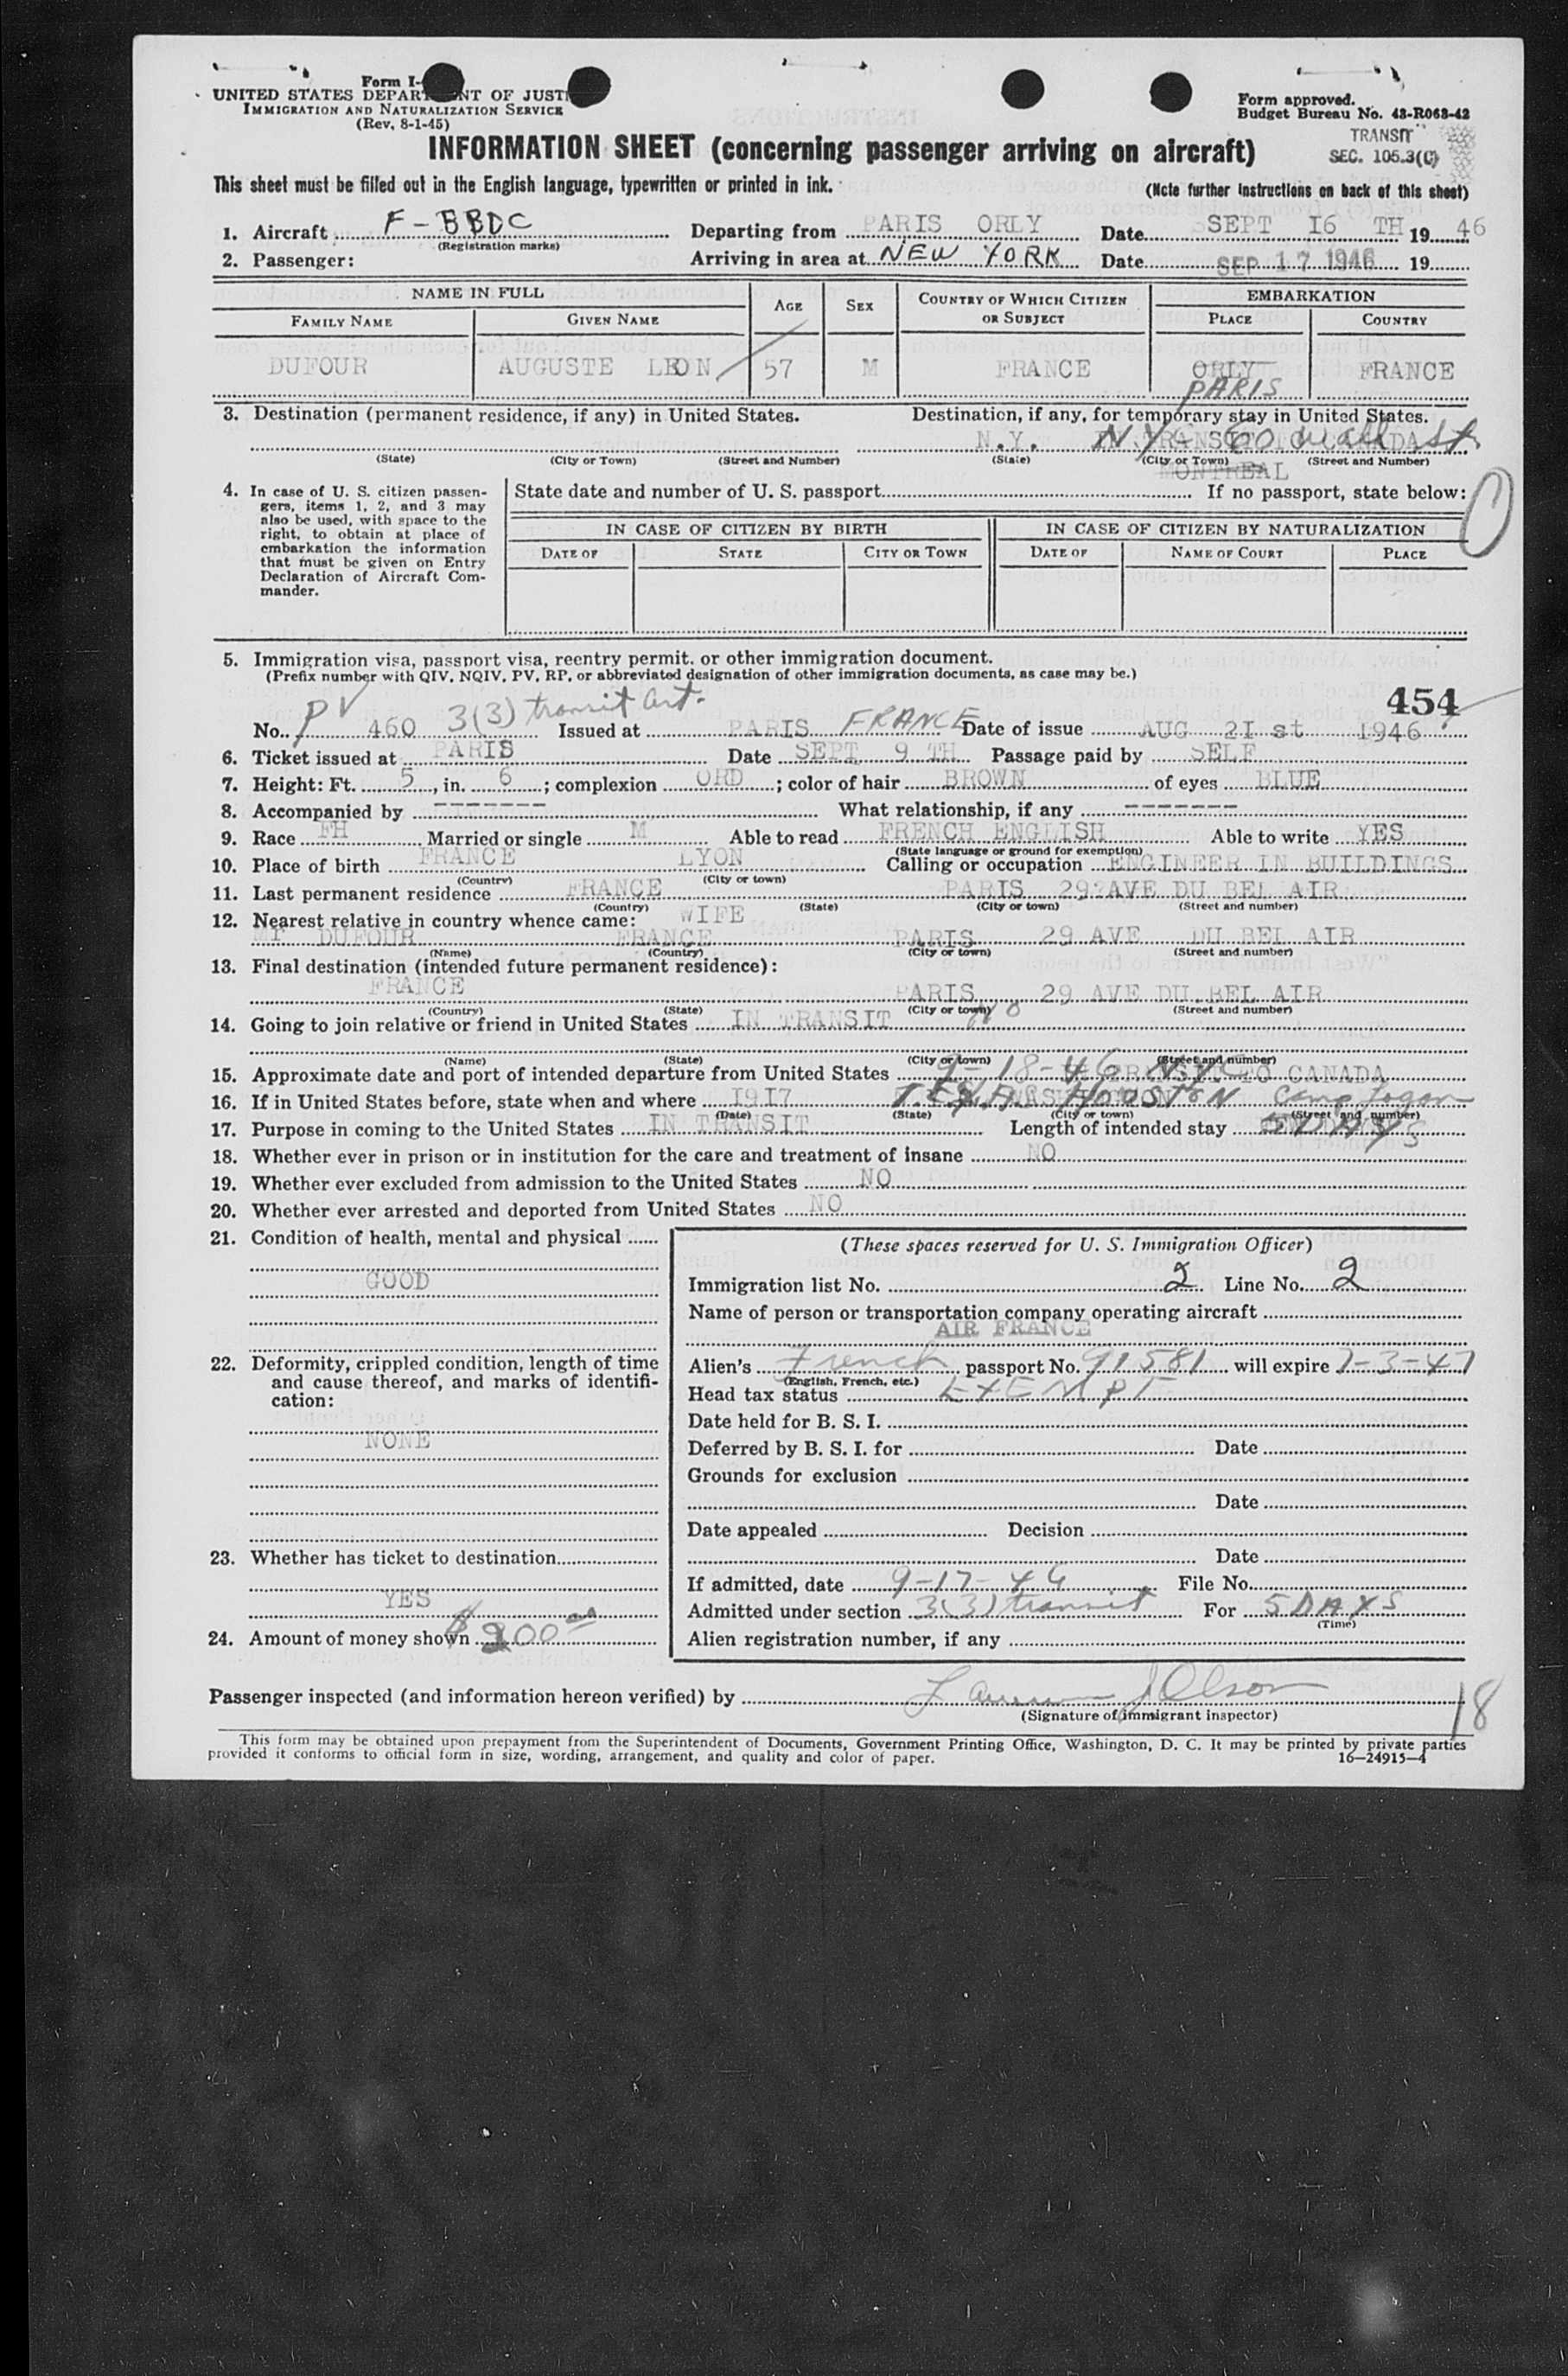 Form I-
UNITED STATES DEPARTMENT OF JUSTI
IMMIGRATION AND NATURALIZATION SERVICE
(Rev. 8-1-45)
Form approved.
Budget Bureau No. 43-R063-42
TRANSIT
SEC. 105.3(C)
INFORMATION SHEET (concerning passenger arriving on aircraft)
This sheet must be filled out in the English language, typewritten or printed in ink.
(Note further instructions on back of this sheet)
1. Aircraft F-BBDC Departing from PARIS ORLY Date SEPT I6 TH 19 46
(Registration marks)
2. Passenger: Arriving in area at NEW YORK Date SEP 17 1946 19
NAME IN FULL AGE SEX COUNTRY OF WHICH CITIZEN OR SUBJECT EMBARKATION
FAMILY NAME GIVEN NAME PLACE COUNTRY
DUFOUR AUGUSTE LEON 57 M FRANCE ORLY FRANCE
PARIS
3. Destination (permanent residence, if any) in United States. Destination, if any, for temporary stay in United States.
N.Y. NYC 60 Wall St
(State) (City or Town) (Street and Number) (State) (City or Town) (Street and Number)
MONTREAL
4. In case of U. S. citizen passengers, items 1, 2, and 3 may also be used, with space to the right, to obtain at place of embarkation the information that must be given on Entry Declaration of Aircraft Commander.
State date and number of U. S. passport If no passport, state below:
IN CASE OF CITIZEN BY BIRTH IN CASE OF CITIZEN BY NATURALIZATION
DATE OF STATE CITY OR TOWN DATE OF NAME OF COURT PLACE
5. Immigration visa, passport visa, reentry permit, or other immigration document.
(Prefix number with QIV, NQIV, PV, RP, or abbreviated designation of other immigration documents, as case may be.)
454
No. PV 460 3(3) transit Art. Issued at PARIS FRANCE Date of issue AUG 2I st 1946
6. Ticket issued at PARIS Date SEPT 9 TH Passage paid by SELF
7. Height: Ft. 5, in. 6; complexion ORD; color of hair BROWN of eyes BLUE
8. Accompanied by ------- What relationship, if any -------
9. Race FH Married or single M Able to read FRENCH ENGLISH Able to write YES
(State language or ground for exemption)
10. Place of birth FRANCE LYON Calling or occupation ENGINEER IN BUILDINGS
(Country) (City or town)
11. Last permanent residence FRANCE PARIS 29 AVE DU BEL AIR
(Country) (State) (City or town) (Street and number)
12. Nearest relative in country whence came: WIFE
DUFOUR FRANCE PARIS 29 AVE DU BEL AIR
(Name) (Country) (City or town) (Street and number)
13. Final destination (intended future permanent residence):
FRANCE PARIS 29 AVE DU BEL AIR
(Country) (State) (City or town) (Street and number)
14. Going to join relative or friend in United States IN TRANSIT NO
(Name) (State) (City or town) (Street and number)
15. Approximate date and port of intended departure from United States 9-18-46 NYC TRANSIT TO CANADA
16. If in United States before, state when and where I9I7 TEXAS HOUSTON Camp Logan
(Date) (State) (City or town) (Street and number)
17. Purpose in coming to the United States IN TRANSIT Length of intended stay 5 DAYS
18. Whether ever in prison or in institution for the care and treatment of insane NO
19. Whether ever excluded from admission to the United States NO
20. Whether ever arrested and deported from United States NO
21. Condition of health, mental and physical
GOOD
22. Deformity, crippled condition, length of time and cause thereof, and marks of identification:
NONE
23. Whether has ticket to destination
YES
24. Amount of money shown $200 00
(These spaces reserved for U. S. Immigration Officer)
Immigration list No. 2 Line No. 2
Name of person or transportation company operating aircraft
AIR FRANCE
Alien's French passport No. 91581 will expire 7-3-47
(English, French, etc.)
Head tax status EXEMPT
Date held for B. S. I.
Deferred by B. S. I. for Date
Grounds for exclusion
Date
Date appealed Decision
Date
If admitted, date 9-17-46 File No.
Admitted under section 3(3) transit For 5 DAYS
(Time)
Alien registration number, if any
Passenger inspected (and information hereon verified) by J Olson
(Signature of immigrant inspector)
18
This form may be obtained upon prepayment from the Superintendent of Documents, Government Printing Office, Washington, D. C. It may be printed by private parties
provided it conforms to official form in size, wording, arrangement, and quality and color of paper.
16—24915-4